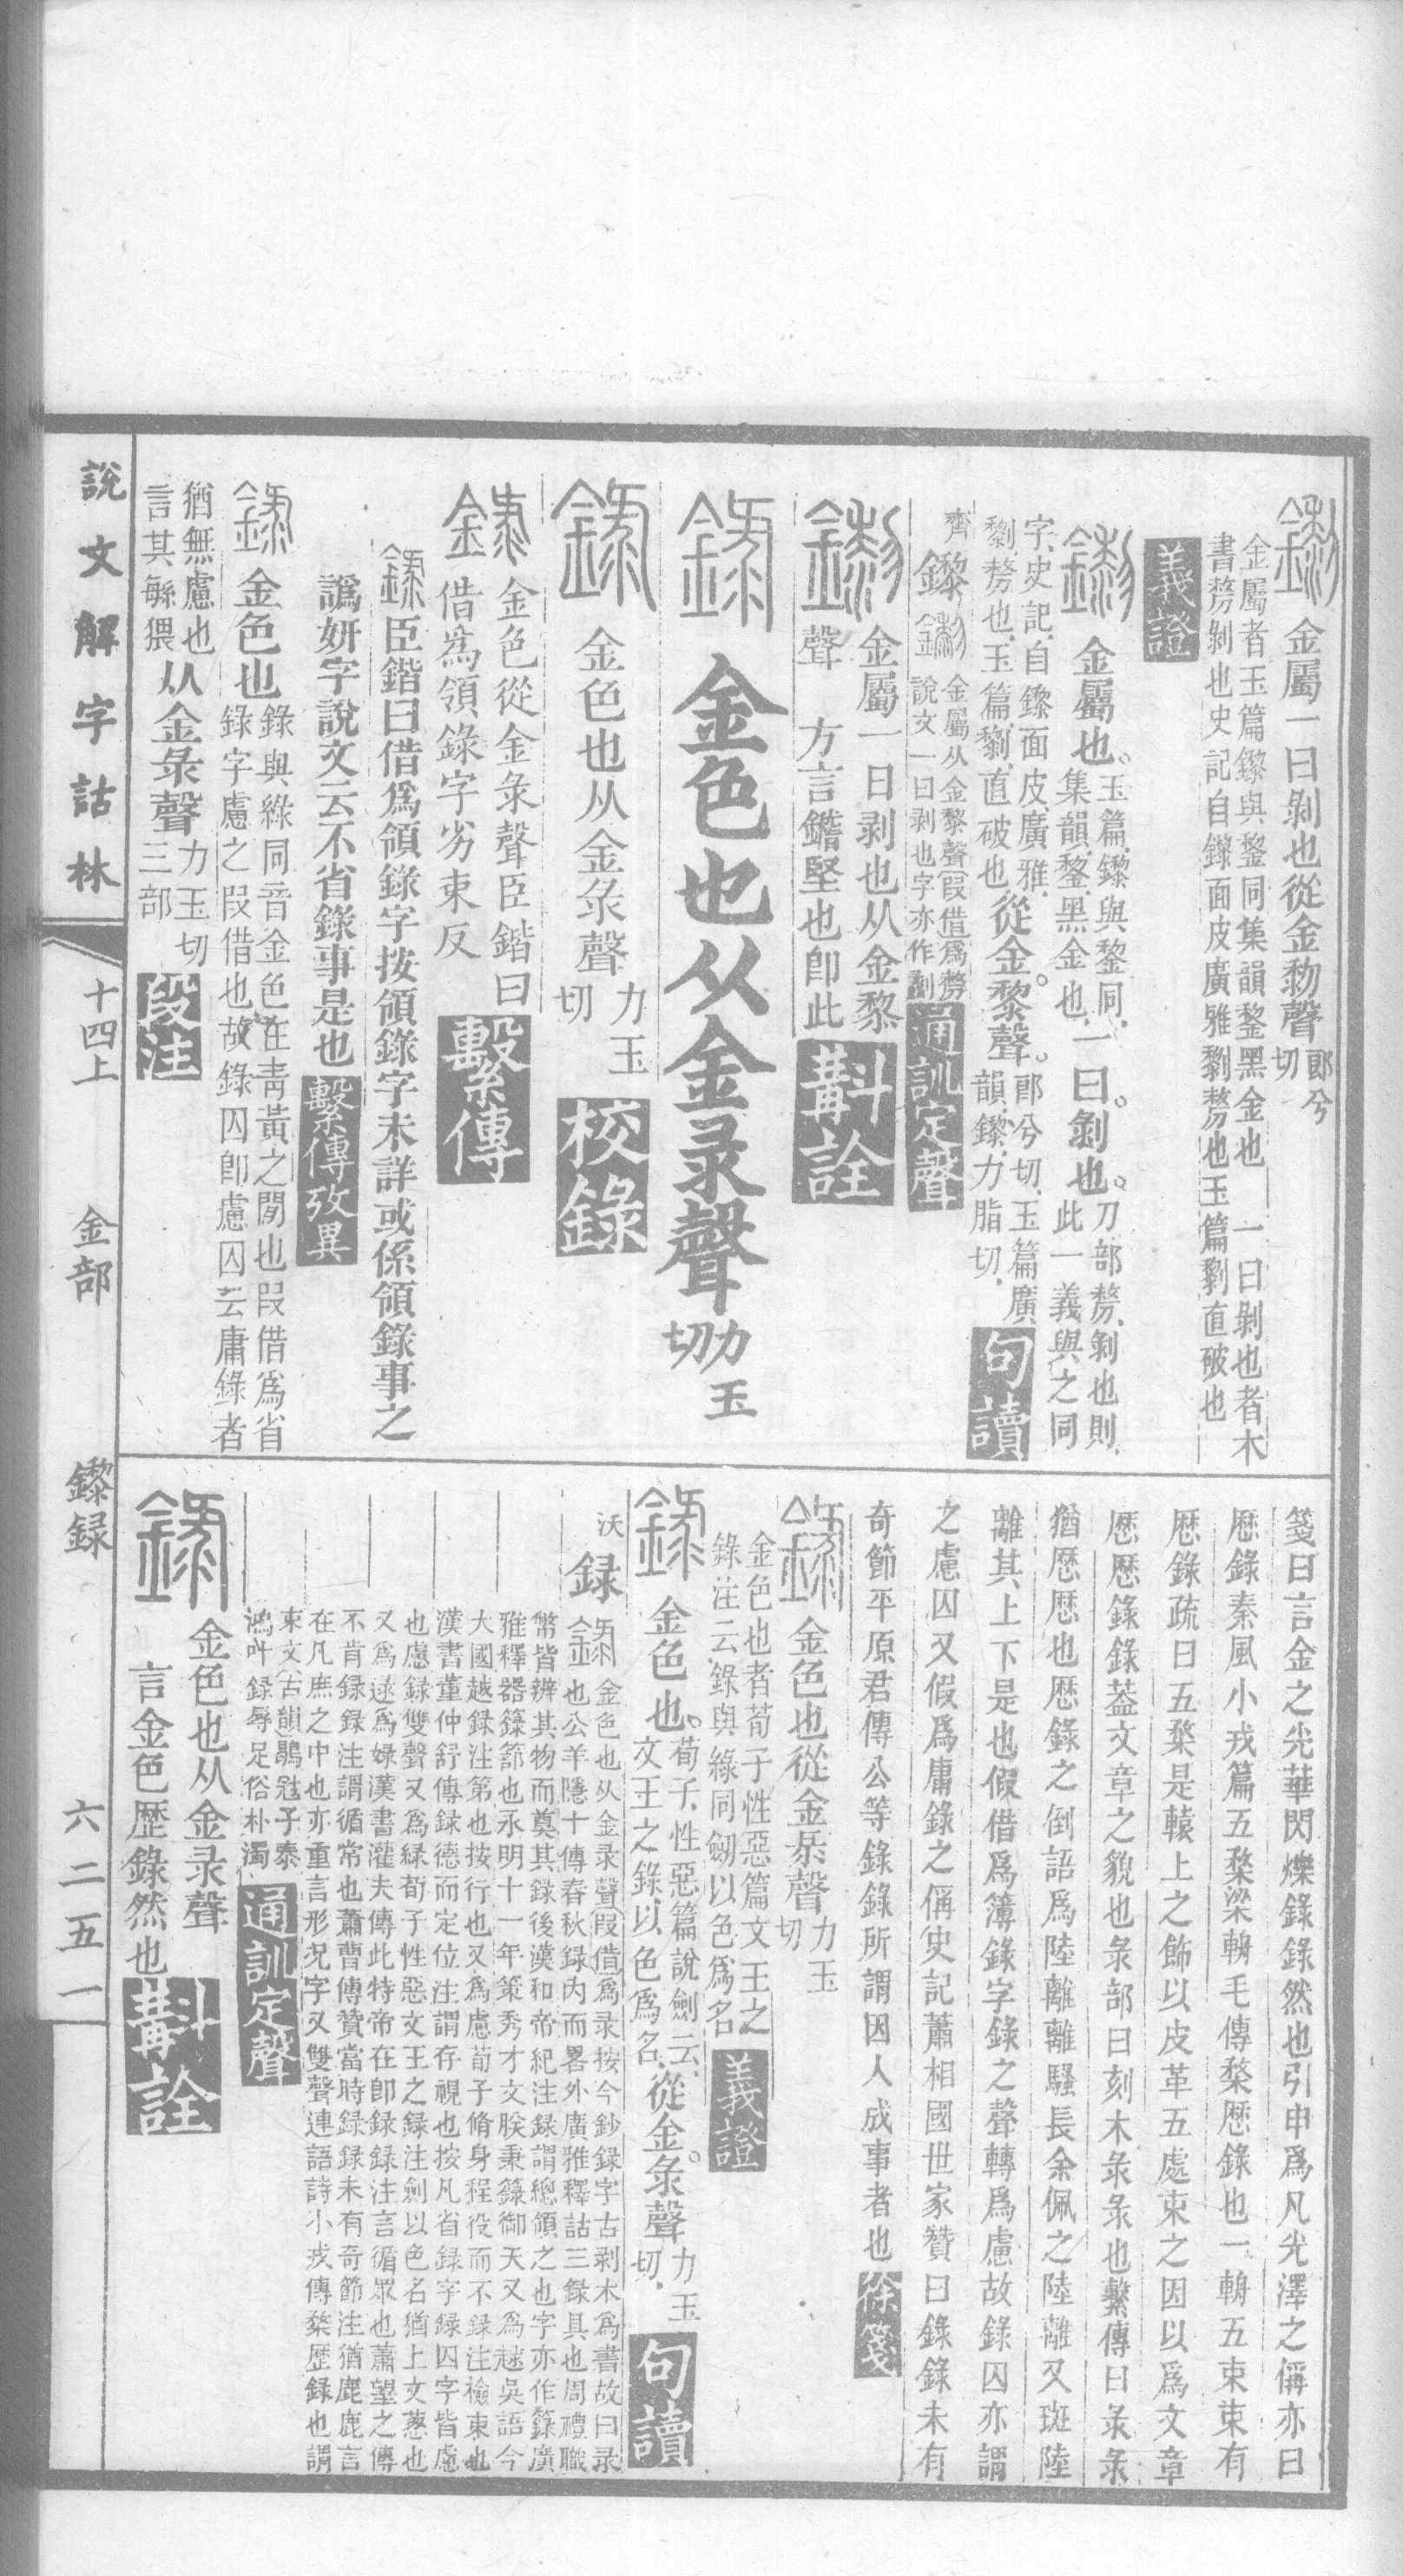 金屬一曰剝也從金黎聲郎兮切
金屬者玉篇鑗與鋫同集韻鋫黑金也 一曰剝也者木
書剺剝也史記自鑗面皮廣雅劙剺也玉篇劙直破也
義證
金屬也。玉篇、鑗與鋫同、集韻、鋫、黑金也、一曰。剝也。刀部剺、剝也則此一義與之同
字、史記、自鑗面皮、廣雅、劙、剺也、玉篇、劙、直破也、從金。黎聲。郎兮切、玉篇廣韻、鑗、力脂切、
句讀
齊 鑗 金屬从金黎聲叚借爲剺說文一曰剝也字亦作劙 通訓定聲
金屬一曰剥也从金黎聲 方言鑙堅也卽此 斠詮
金色也从金录聲 力玉切
金色也从金彔聲 力玉切 校錄
金色從金彔聲臣鍇曰借爲領錄字劣束反 繫傳
臣鍇曰借爲領錄字按領錄字未詳或係領錄事之
譌妍字說文云不省錄事是也 繫傳攷異
金色也錄與綠同音金色在青黃之閒也叚借爲省錄字慮之叚借也故錄囚卽慮囚云庸錄者
猶無慮也言其緐猥从金彔聲力玉切三部 段注
箋曰言金之光華閃爍錄錄然也引申爲凡光澤之偁亦曰
歷錄秦風小戎篇五楘梁輈毛傳楘歷錄也一輈五束束有
歷錄疏曰五楘是轅上之飾以皮革五處束之因以爲文章
歷歷錄錄葢文章之貌也彔部曰刻木彔彔也繫傳曰彔彔
猶歷歷也歷錄之倒語爲陸離離騷長余佩之陸離又斑陸
離其上下是也假借爲簿錄字錄之聲轉爲慮故錄囚亦謂
之慮囚又假爲庸錄之偁史記蕭相國世家贊曰錄錄未有
奇節平原君傳公等錄錄所謂因人成事者也 徐箋
金色也從金彔聲力玉切
金色也者荀子性惡篇文王之
錄注云錄與綠同劒以色爲名 義證
金色也。荀子、性惡篇說劍云、文王之錄、以色爲名、從金。彔聲力玉切、 句讀
沃 録 金色也从金录聲叚借爲录按今鈔録字古剥木爲書故曰录
也公羊隱十傳春秋録内而畧外廣雅釋詁三録具也周禮職
幣皆辨其物而奠其録後漢和帝紀注録謂總領之也字亦作籙廣
雅釋器籙篰也永明十一年策秀才文朕秉籙御天又爲逯吳語今
大國越録注第也按行也又爲慮荀子脩身程役而不録注檢束也
漢書董仲舒傳録德而定位注謂存視也按凡省録字録囚字皆慮
也慮録雙聲又爲緑荀子性惡文王之録注劍以色名猶上文蔥也
又爲逯爲娽漢書灌夫傳此特帝在卽録録注言循眾也蕭望之傳
不肯録録注謂循常也蕭曹傳贊當時録録未有奇節注猶鹿鹿言
在凡庶之中也亦重言形況字又雙聲連語詩小戎傳楘歷録也謂
束文 古韻 鶡冠子泰鴻叶録辱足俗朴濁 通訓定聲
金色也从金录聲
言金色歷錄然也 斠詮
說文解字詁林 十四上 金部 鑗録 六二五一